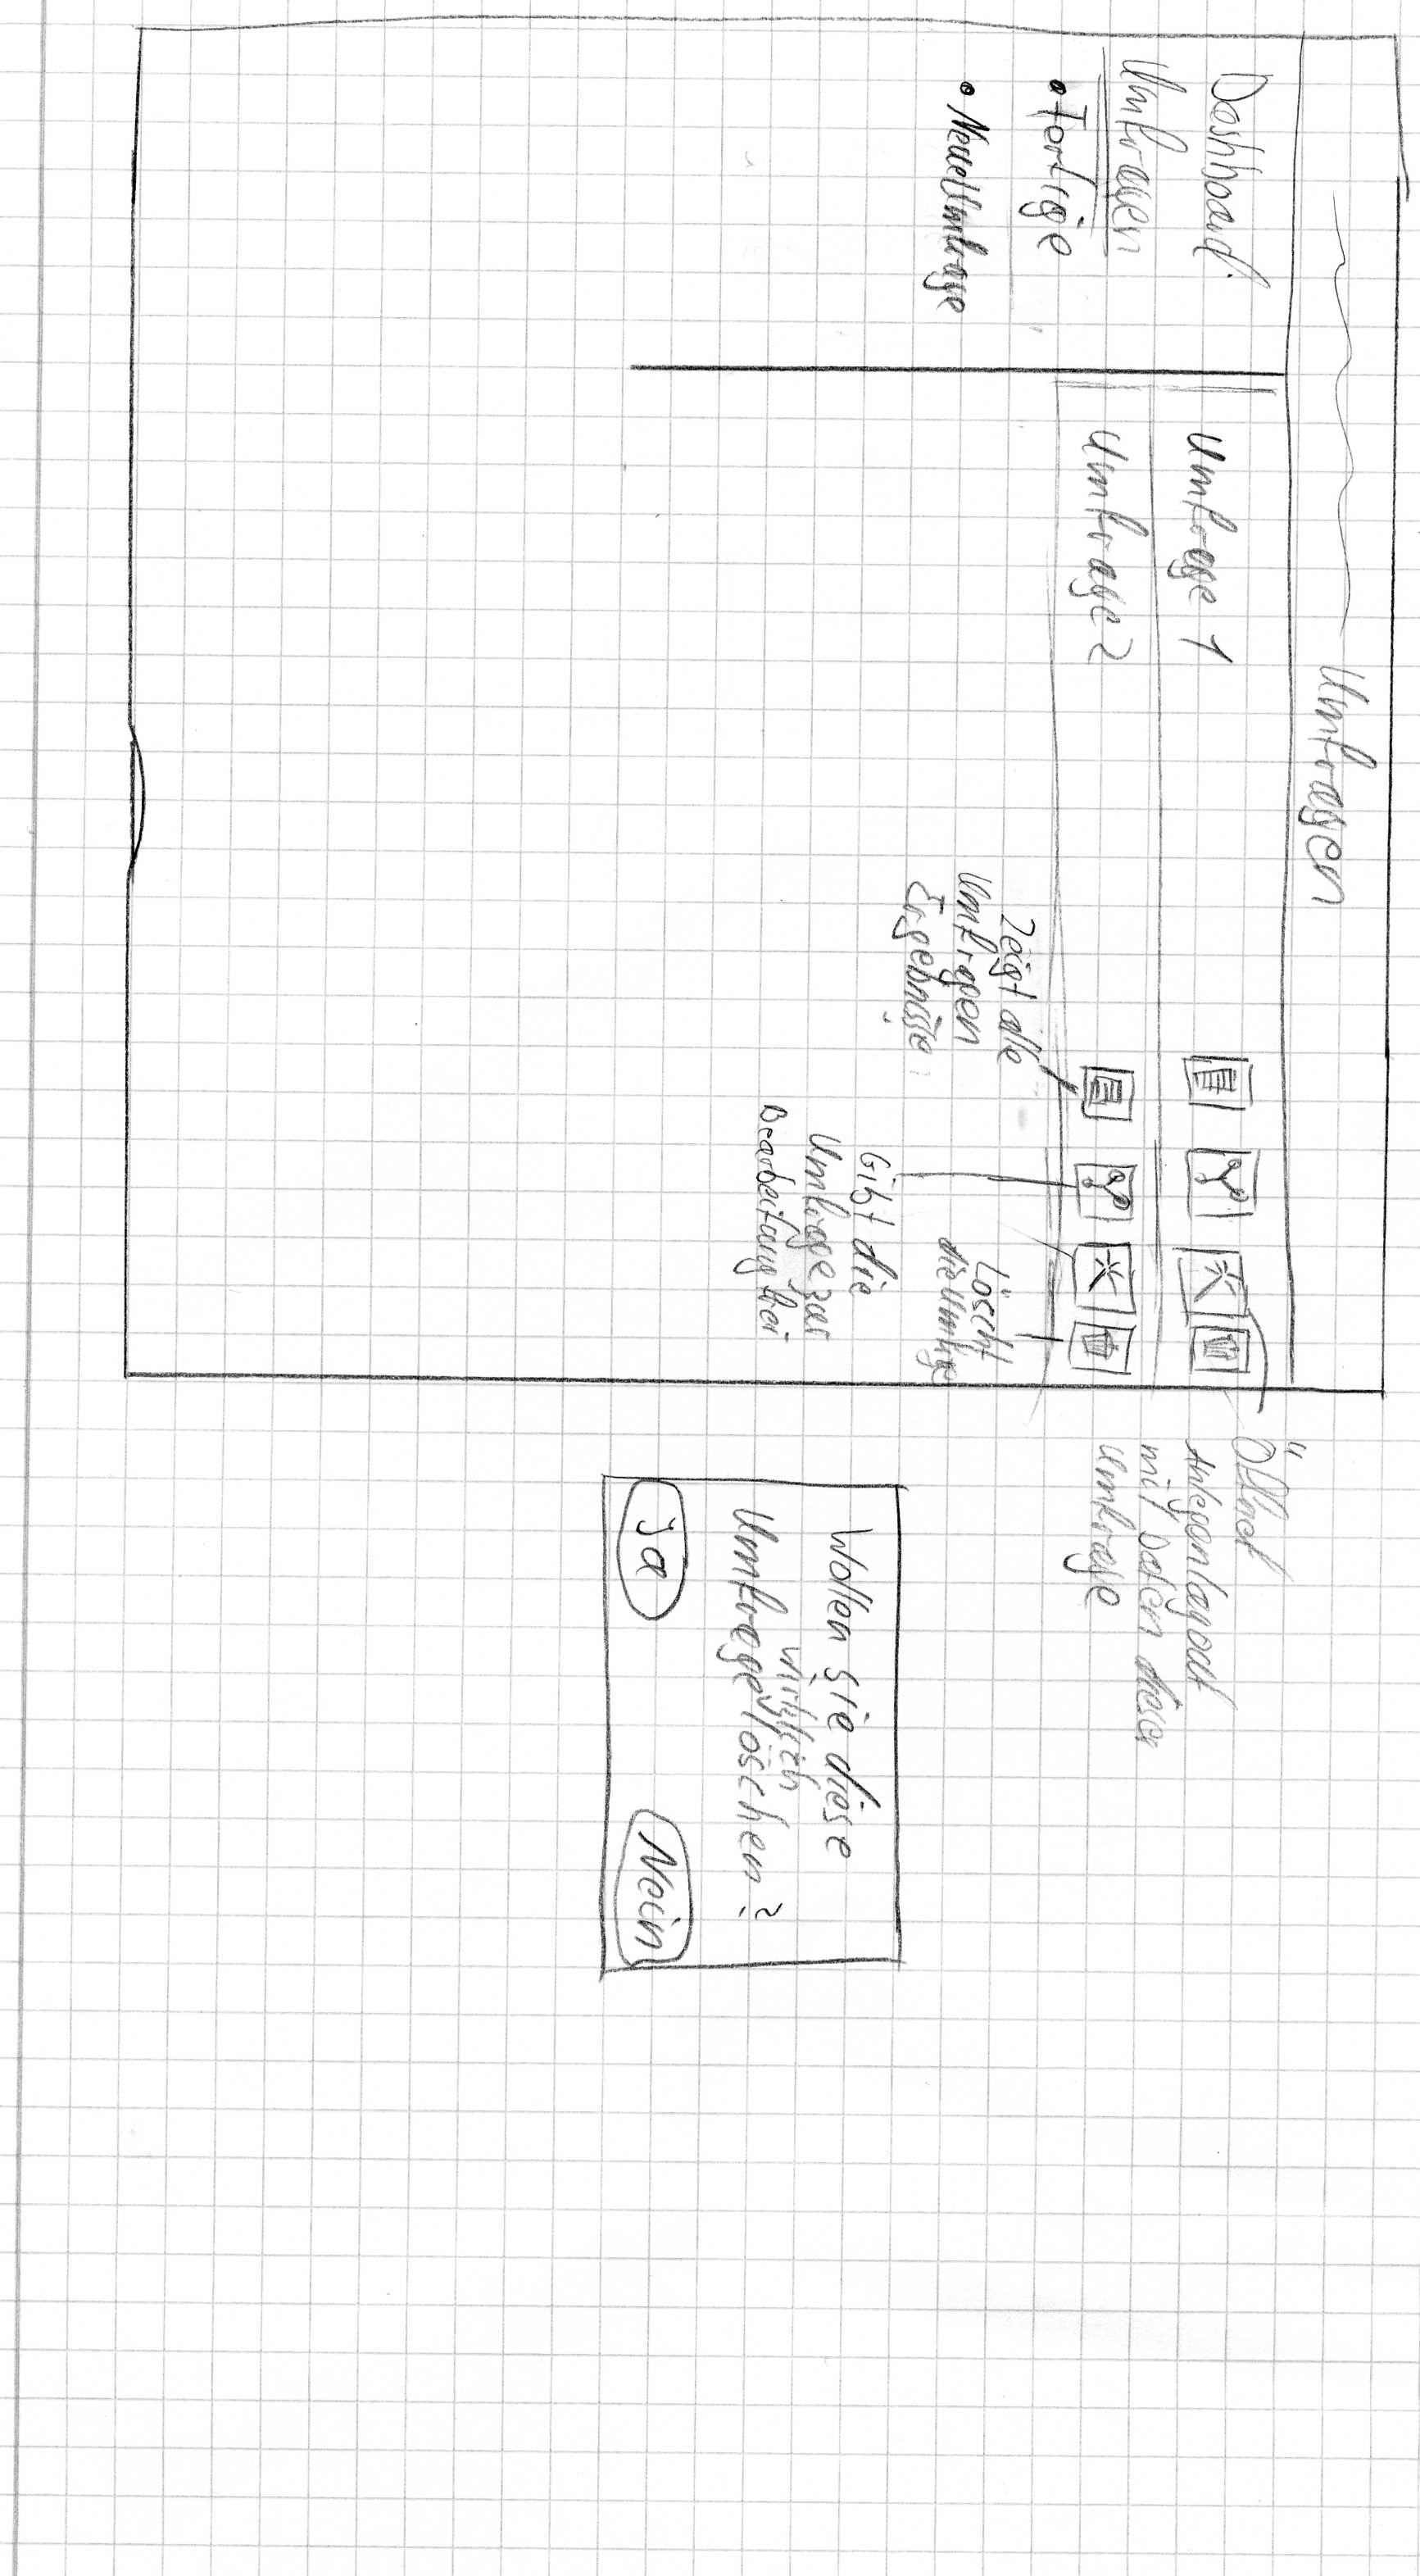 Umfragen
Dashboard
Umfragen
• Fertige
• Neue Umfrage
Umfrage 1
Umfrage 2
Zeigt alle
Umfragen
Ergebnisse
Gibt die
Umfrage zur
Bearbeitung frei
Löscht
die Umfrage
Öffnet
Anlegenlayout
mit Daten dieser
Umfrage
Wollen sie diese
wirklich
Umfrage löschen?
Ja
Nein